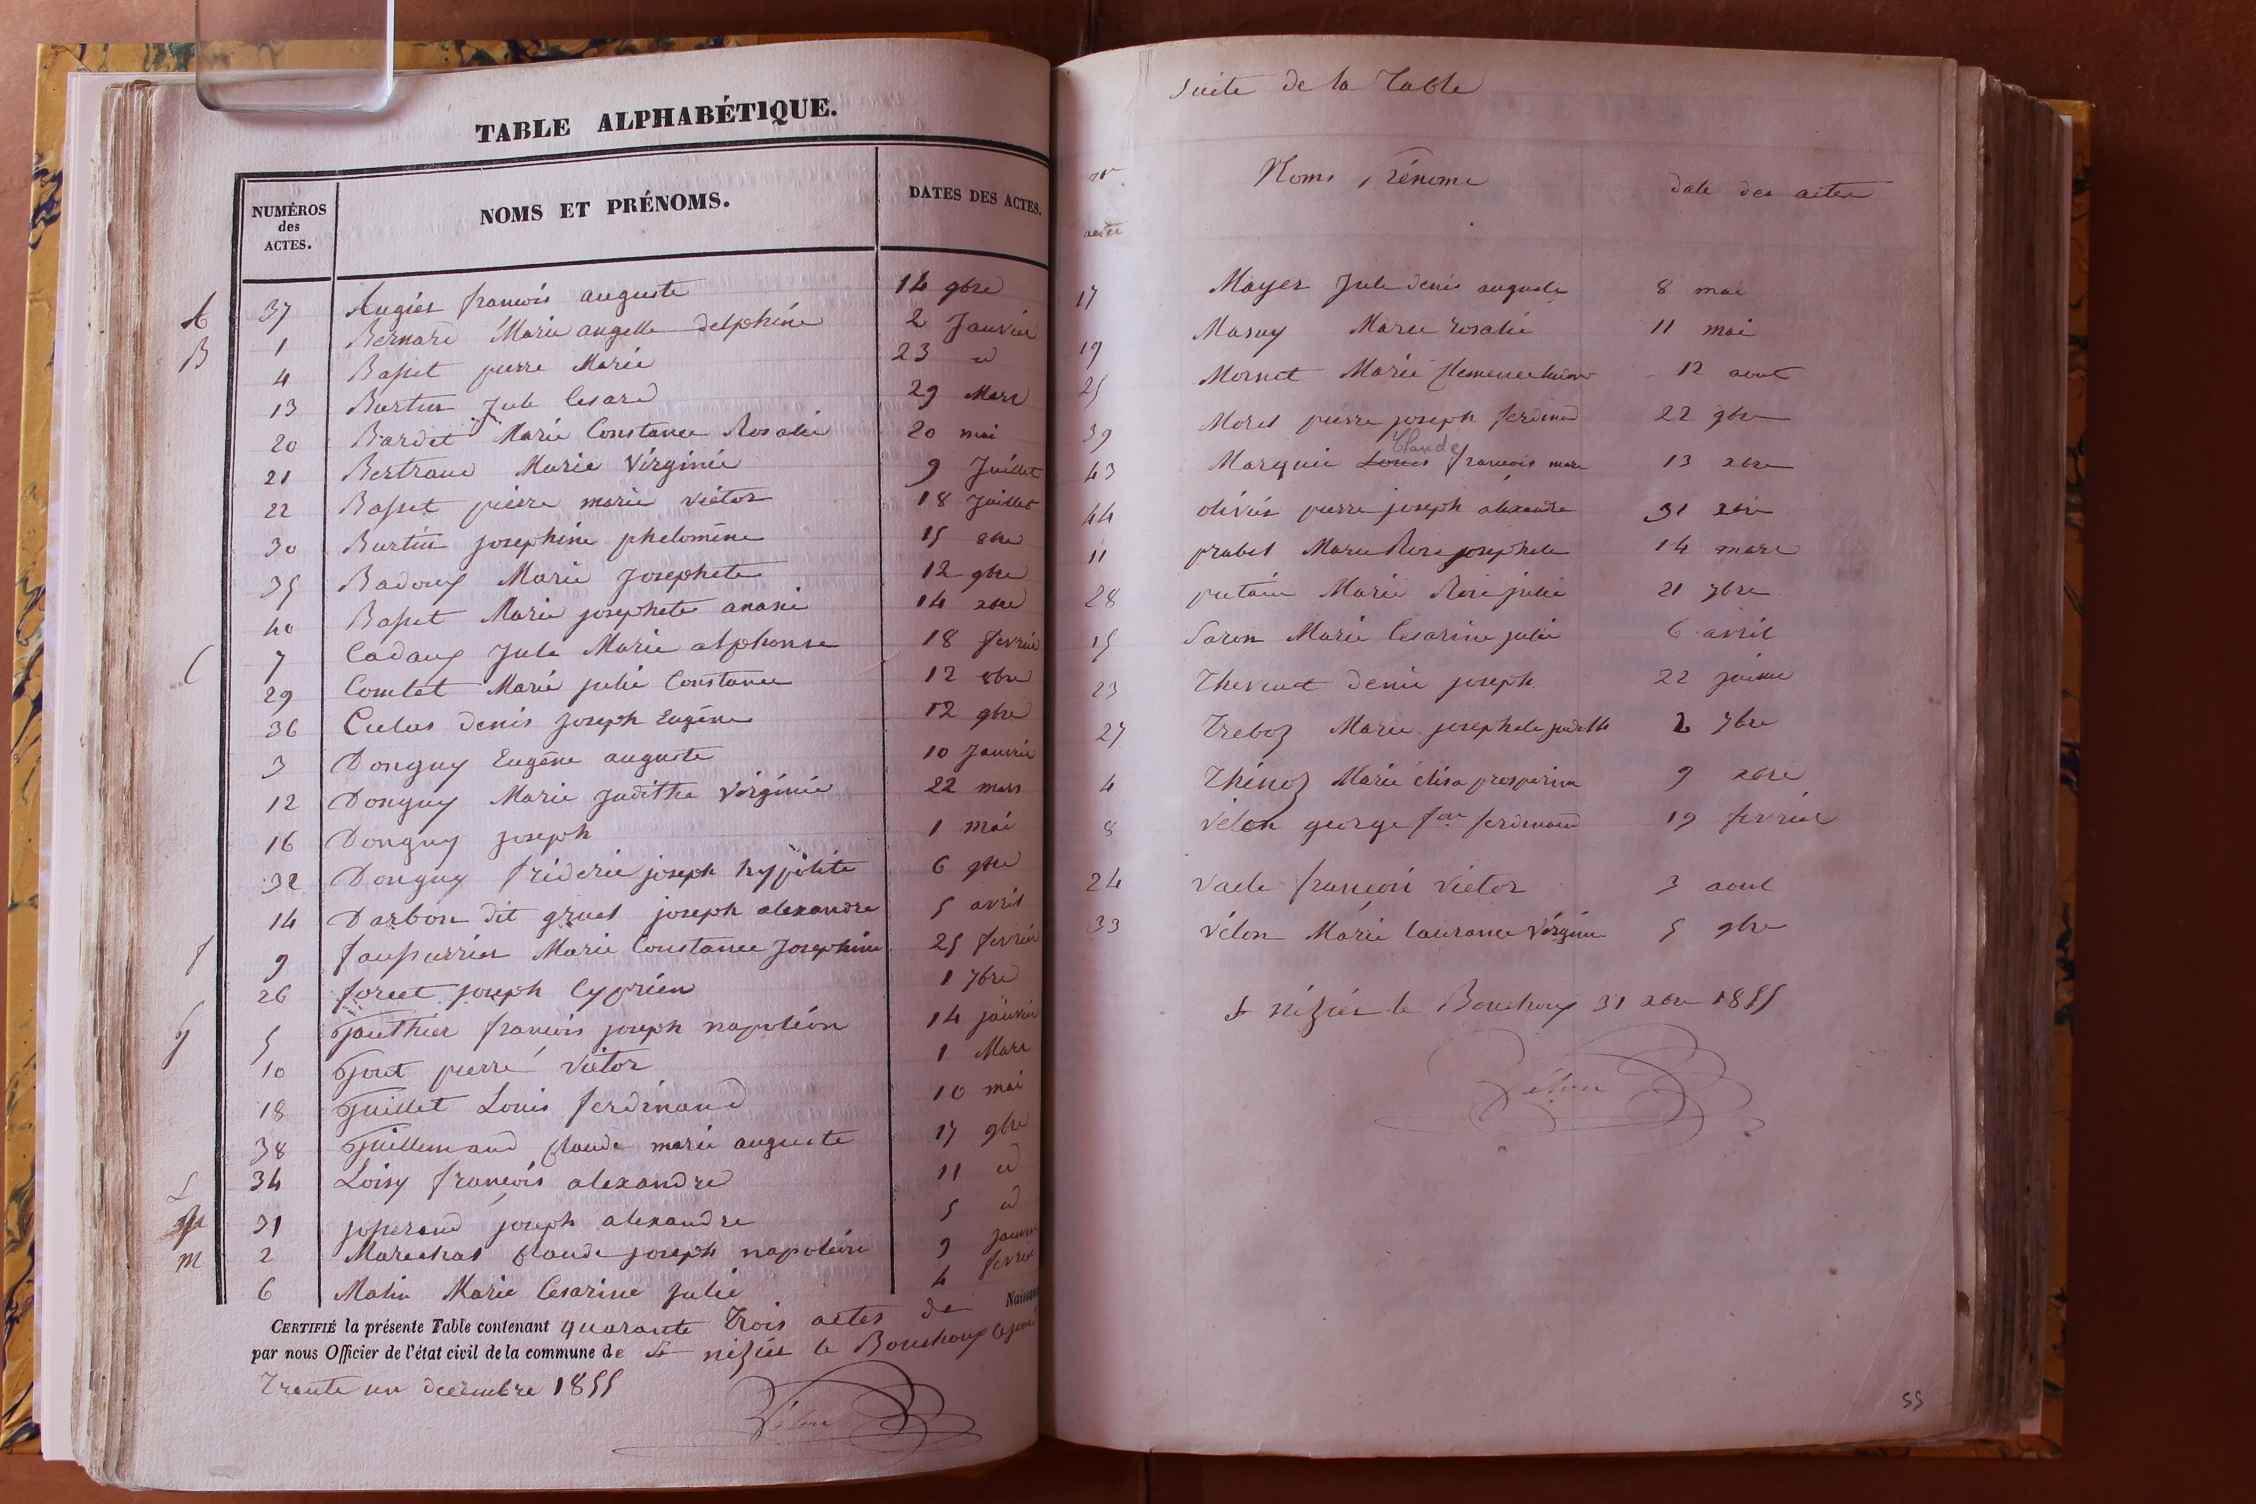 TABLE ALPHABÉTIQUE.
NUMÉROS des ACTES. NOMS ET PRÉNOMS. DATES DES ACTES.
A 37 Augier francois auguste 14 9bre
B 1 Bernard Marie angelle delphine 2 Janvier
4 Basset pierre Marie 23 id
13 Burtin Jule Cesard 29 Mars
20 Bardet Marie Constance Rosalie 20 mai
21 Bertrand Marie Virginie 9 Juillet
22 Basset pierre marie victor 18 Juillet
30 Burtin josephine phelomène 15 8bre
35 Badoux Marie Josephete 12 9bre
40 Basset Marie josephete anasie 14 xbre
C 7 Cadaux Jule Marie alphonse 18 fevrier
29 Comtet Marie julie Constance 12 8bre
36 Culas denis Joseph Eugène 12 9bre
3 Donguy Eugène auguste 10 Janvier
12 Donguy Marie Juditha Virginie 22 mars
16 Donguy joseph 1 mai
32 Donguy fréderic joseph hyppolite 6 9bre
14 Darbon dit gruet joseph alexandre 5 avril
f 9 faussurrier Marie Constance Josephine 25 fevrier
26 foret joseph Cyprien 1 7bre
g 5 Gauthier francois joseph napoléon 14 janvier
10 Gout pierre Victor 1 Mars
18 Guillet Louis ferdinand 10 mai
38 Guillemaud Claude marie auguste 17 9bre
L 34 Loisy francois alexandre 11 id
31 josserand joseph alexandre 5 id
m 2 Marechal Claude joseph napoléon 9 Janvier
6 Matin Marie Cesarine Julie 4 fevrier
CERTIFIÉ la présente Table contenant quarante trois actes de Naissance
par nous Officier de l'état civil de la commune de St nizier le Bouchoux
Trente un decembre 1855
Vélon
Suite de la Table
actes Noms Prénoms date des actes
17 Mayer Jule denis auguste 8 mai
19 Masuy Marie rosalie 11 mai
25 Mornet Marie Clemence 12 aout
39 Moret pierre joseph ferdinand 22 9bre
Claude
43 Marquie Louis francois marie 13 xbre
44 olivier pierre joseph aléxandre 31 xbre
11 prabel Marie Rose josephete 14 mars
28 putain Marie Rose julie 21 7bre
15 Saron Marie Cesarine julie 6 avril
23 Thevenet denis joseph 22 juillet
27 Treboz Marie josephete judith 2 7bre
4 Thénoz Marie élisa prosperine 9 xbre
8 Vélon george fois ferdinand 19 fevrier
24 Vacle francois Victor 3 aout
33 Vélon Marie laurance Virginie 5 9bre
St nizier le Bouchoux 31 xbre 1855
Vélon
55